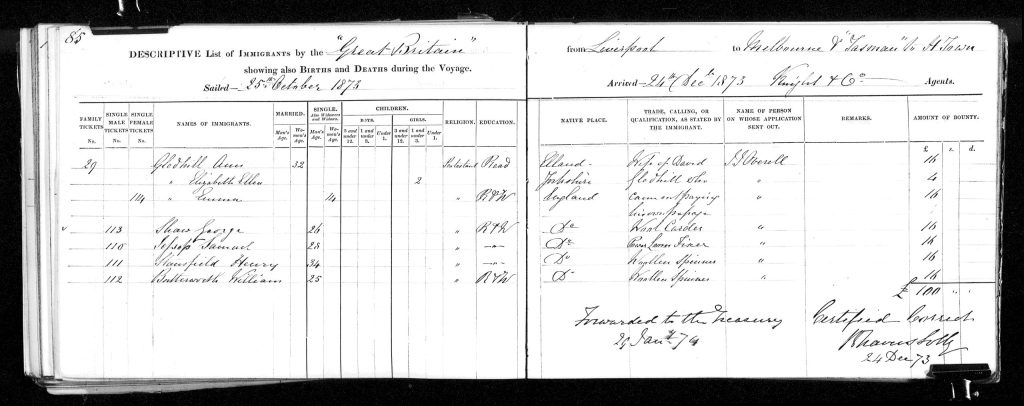 85
DESCRIPTIVE List of IMMIGRANTS by the "Great Britain" from Liverpool to Melbourne & "Tasman" to H Town
showing also BIRTHS and DEATHS during the Voyage.
Sailed 25th October 1873 Arrived 24th Dec 1873 Knight & Co Agents.
FAMILY TICKETS No. SINGLE MALE TICKETS No. SINGLE FEMALE TICKETS No. NAMES OF IMMIGRANTS. MARRIED. Man's Age. Woman's Age. SINGLE. Also Widowers and Widows. Man's Age. Woman's Age. CHILDREN. BOYS. 5 and under 12. 1 and under 5. Under 1. GIRLS. 5 and under 12. 1 and under 5. Under 1. RELIGION. EDUCATION. NATIVE PLACE. TRADE, CALLING, OR QUALIFICATION, AS STATED BY THE IMMIGRANT. NAME OF PERSON ON WHOSE APPLICATION SENT OUT. AMOUNT OF BOUNTY.
£ s. d.
29 Gledhill Ann 32 Protestant Read Elland Wife of David Overell 16
" Elizabeth Ellen 2 " Yorkshire Gledhill who " 4
114 " Emma 14 " R&W England came out paying " 16
his own passage
113 Shaw George 26 " R&W Do Wool Carder " 16
110 Jessop Samuel 23 " Do Power Loom " 16
111 Stansfield Henry 34 " Do Woollen Spinner " 16
112 Butterworth William 25 " R&W Do Woollen Spinner " 16
£ 100 " "
Forwarded to the Treasury Certified Correct
29 Jany 74
24 Dec 73